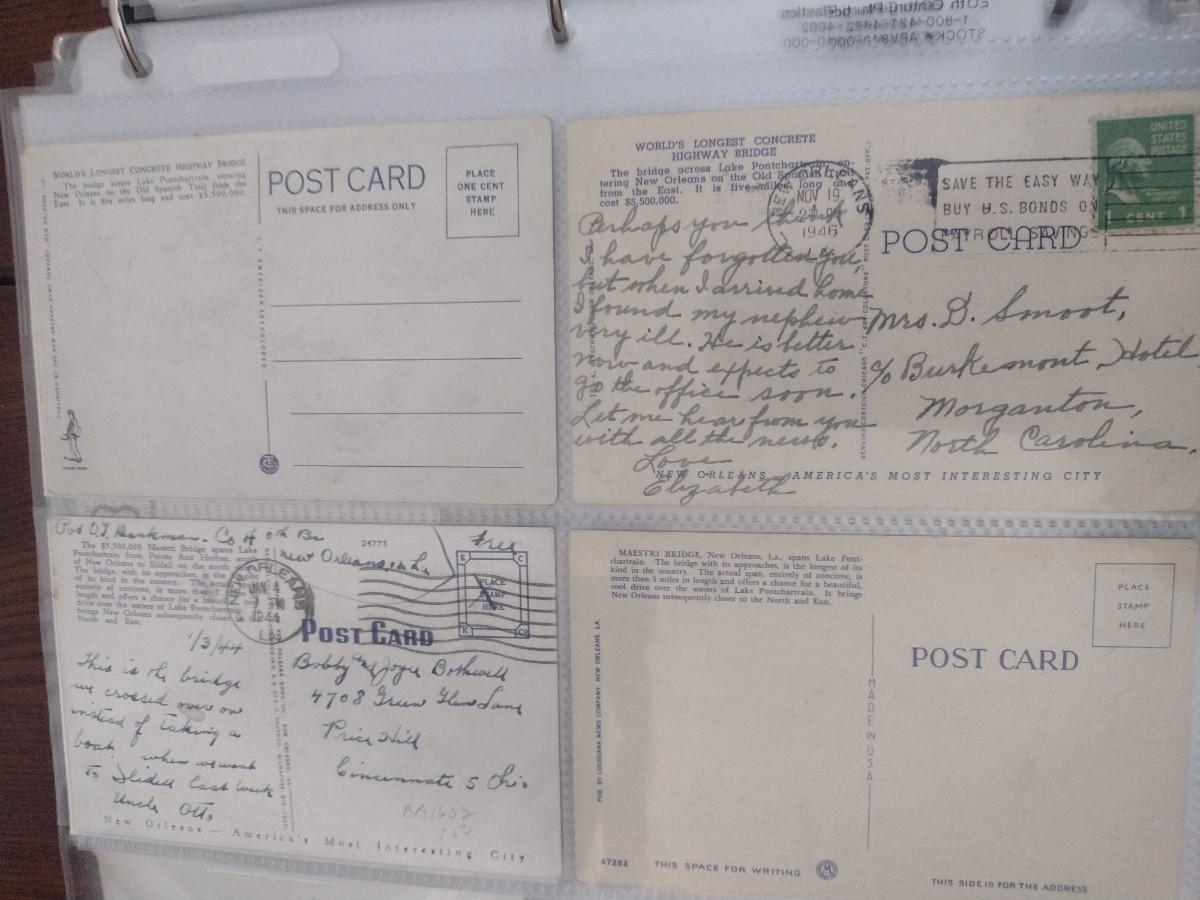 20th Century Plastics
1-800-421-4662
WORLD'S LONGEST CONCRETE HIGHWAY BRIDGE
The bridge across Lake Pontchartrain, entering
New Orleans on the Old Spanish Trail from the
East. It is five miles long and cost $5,500,000.
POST CARD
THIS SPACE FOR ADDRESS ONLY
PLACE
ONE CENT
STAMP
HERE
PUBLISHED BY THE NEW ORLEANS NEWS COMPANY, NEW ORLEANS, LA.
C. T. AMERICAN ART COLORED
WORLD'S LONGEST CONCRETE
HIGHWAY BRIDGE
The bridge across Lake Pontchartrain, en-
tering New Orleans on the Old Spanish Trail
from the East. It is five miles long and
cost $5,500,000.
NEW ORLEANS
NOV 19
1946
LA.
SAVE THE EASY WAY
BUY U.S. BONDS ON
PAYROLL SAVINGS
UNITED
STATES
POSTAGE
1 CENT 1
POST CARD
Perhaps you think
I have forgotten you,
but when I arrived home
I found my nephew
very ill. He is better
now and expects to
go the office soon.
Let me hear from you
with all the news.
Love
Elizabeth
Mrs. D. Smoot,
c/o Burkemont Hotel,
Morganton,
North Carolina.
NEW ORLEANS — AMERICA'S MOST INTERESTING CITY
Co H
New Orleans La.
24775
Free
The $5,500,000 Maestri Bridge spans Lake
Pontchartrain from Pointe Aux Herbes,
of New Orleans to Slidell on the north
The bridge, with its approaches, is the
of its kind in the country. The
entirely of concrete, is more than 5 miles in
length and offers a chance for a beautiful
drive over the waters of Lake Pontchartrain. It
brings New Orleans subsequently closer to the
North and East.
NEW ORLEANS
JAN 4
7 PM
1944
LA.
PLACE
STAMP
HERE
POST CARD
1/3/44
This is the bridge
we crossed over on
instead of taking a
boat when we went
to Slidell last week
Uncle Otto
Bobby and Joyce Bothwell
4708 Green Glen Lane
Price Hill
Cincinnati 5 Ohio
BB1602
New Orleans — America's Most Interesting City
MAESTRI BRIDGE, New Orleans, La., spans Lake Pont-
chartrain. The bridge with its approaches, is the longest of its
kind in the country. The actual span, entirely of concrete, is
more than 5 miles in length and offers a chance for a beautiful,
cool drive over the waters of Lake Pontchartrain. It brings
New Orleans subsequently closer to the North and East.
PLACE
STAMP
HERE
POST CARD
MADE IN USA
PUB. BY LOUISIANA NEWS COMPANY, NEW ORLEANS, LA.
47252
THIS SPACE FOR WRITING
THIS SIDE IS FOR THE ADDRESS